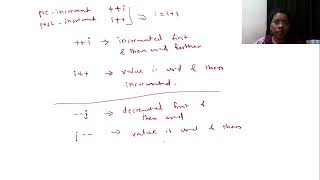 pre-increment ++i
post-increment i++ ] ⇒ i = i+1
++i → incremented first
& then used further
i++ → value is used & then
incremented.
--j → decremented first &
then used
j-- → value is used & then